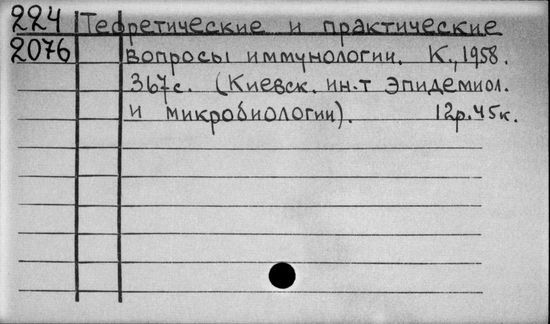 224 Теоретические и практические
2076 вопросы иммунологии. К., 1958.
367с. (Киевск. ин-т эпидемиол.
и микробиологии). 12р.45к.